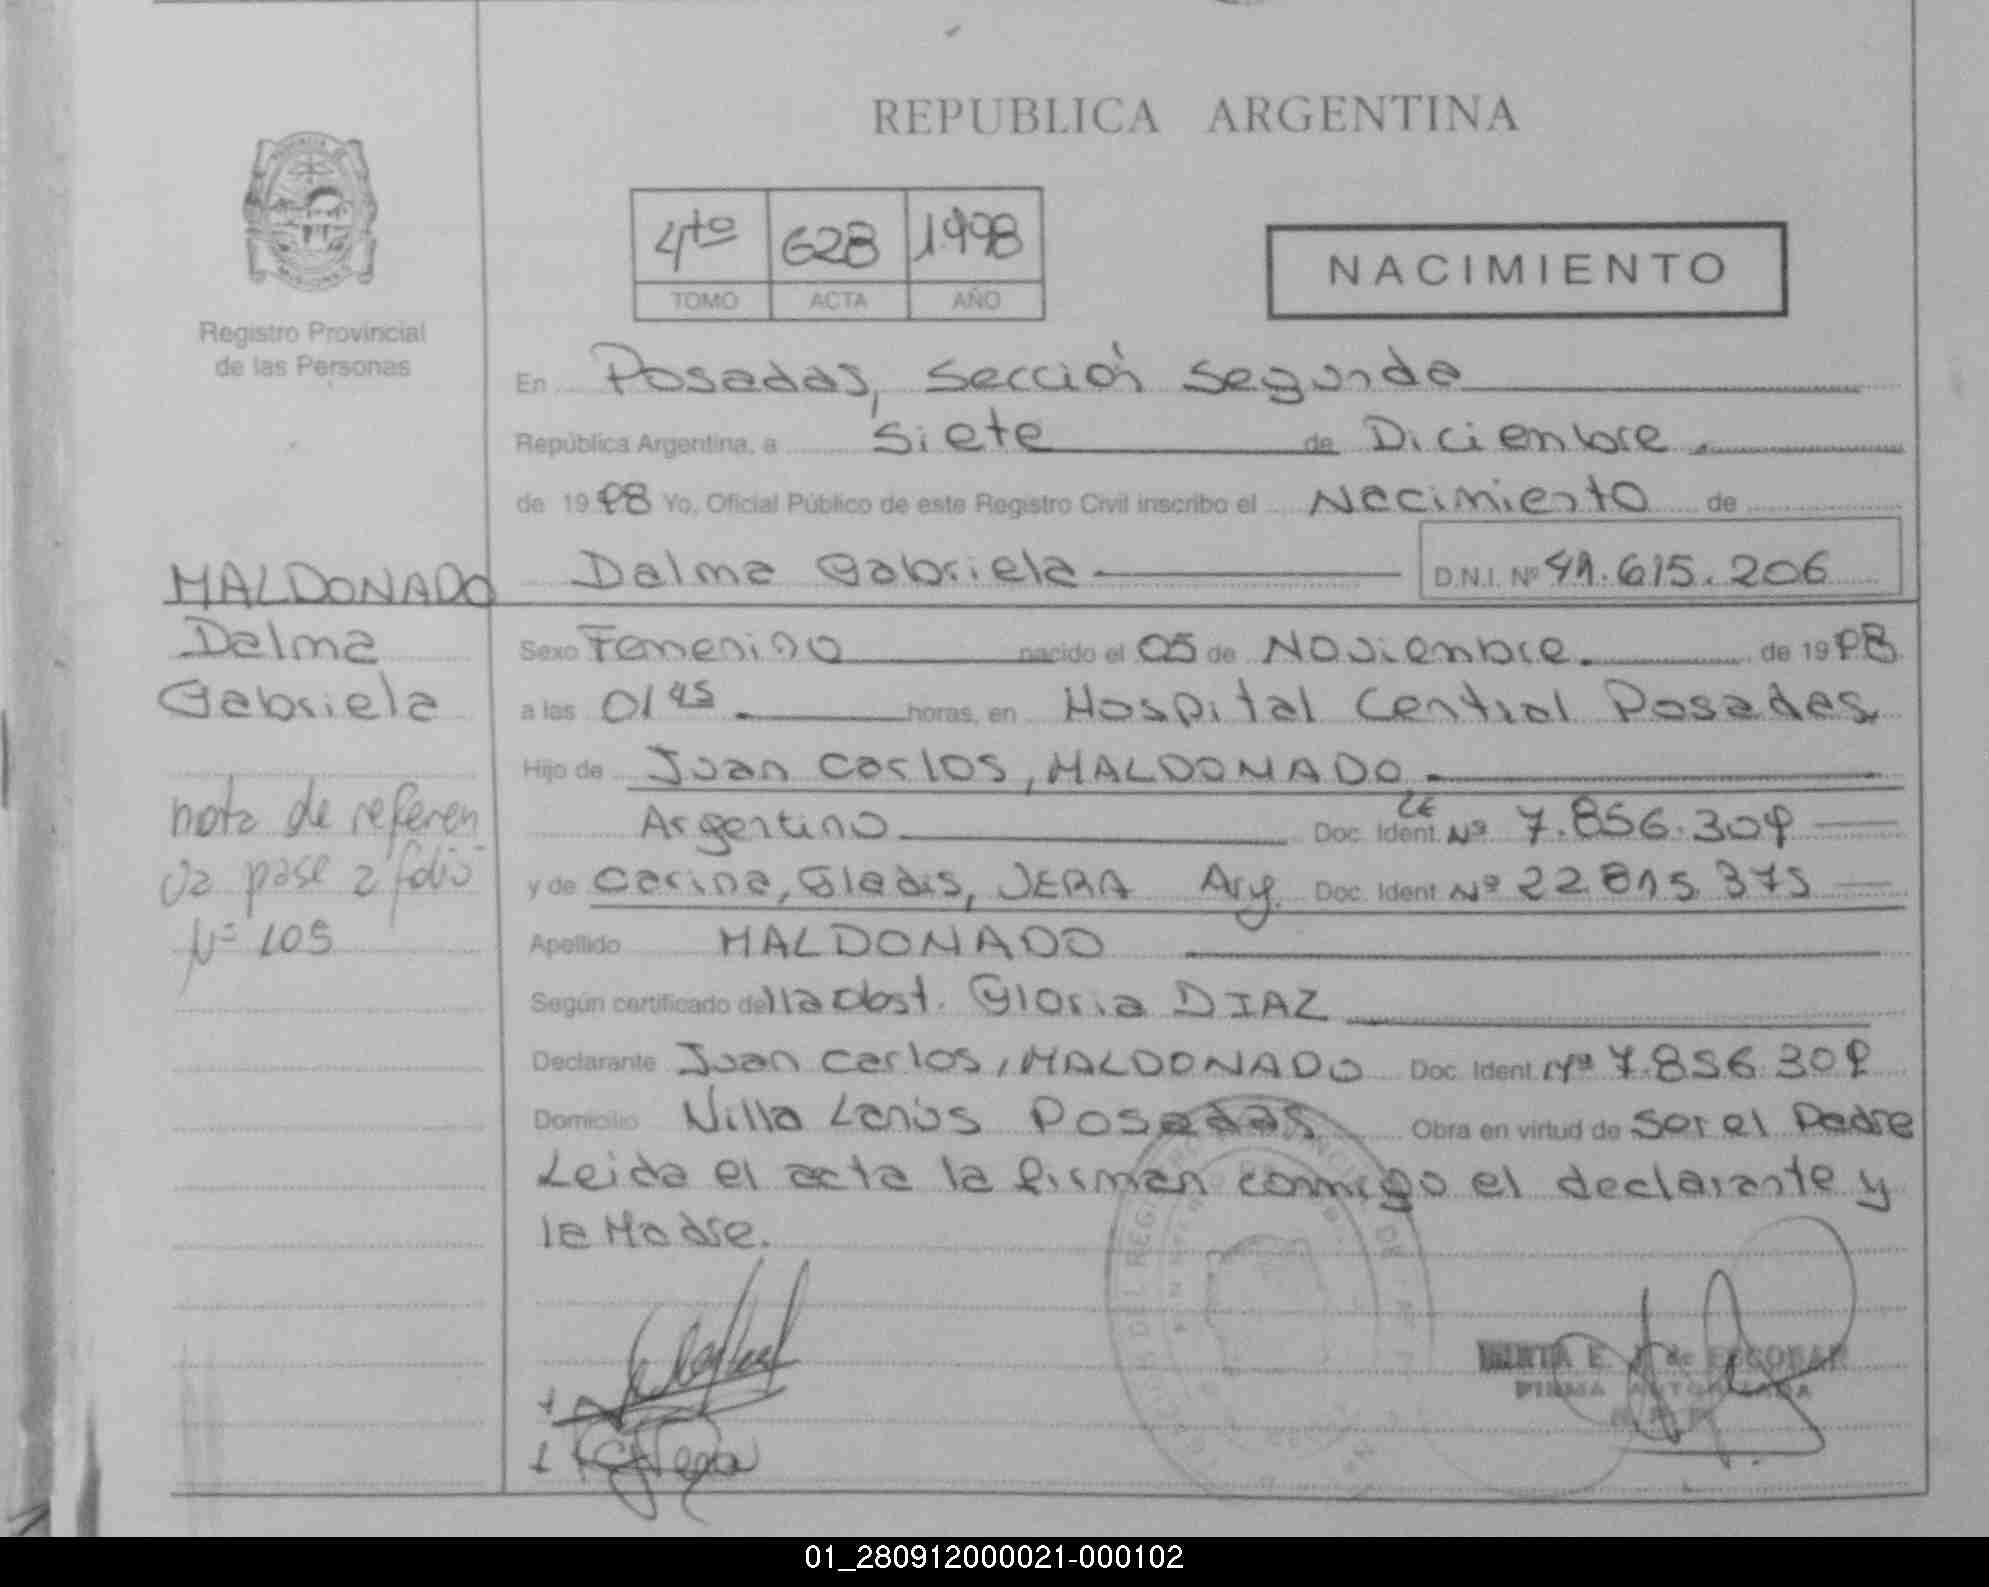 REPUBLICA ARGENTINA
4to 628 1998
TOMO ACTA AÑO
NACIMIENTO
Registro Provincial
de las Personas
En Posadas, Sección Segunda
República Argentina, a Siete de Diciembre
de 1998 Yo, Oficial Público de este Registro Civil inscribo el Nacimiento de
Dalma Gabriela D.N.I. Nº 41.615.206
MALDONADO
Dalma
Gabriela
nota de referen
va pase a folio
Nº 105
Sexo Femenino nacido el 05 de Noviembre de 1998
a las 01 45 horas, en Hospital Central Posadas
Hijo de Juan Carlos, MALDONADO
Argentino Doc. Ident. LE Nº 7.856.309
y de Carina, Gladis, VERA Arg. Doc. Ident. Nº 22.815.375
Apellido MALDONADO
Según certificado de lla obst. Gloria DIAZ
Declarante Juan Carlos, MALDONADO Doc. Ident. Nº 7.856.309
Domicilio Villa Lanús Posadas Obra en virtud de Ser el Padre
Leida el acta la firman conmigo el declarante y
la Madre.
E. de ESCOBAR
FIRMA AUTORIZADA
01_280912000021-000102